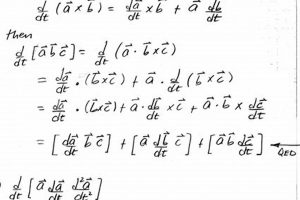 d/dt (a⃗ × b⃗) = da⃗/dt × b⃗ + a⃗ db⃗/dt
then
d/dt [a⃗ b⃗ c⃗] = d/dt (a⃗ · b⃗ × c⃗)
= da⃗/dt · (b⃗ × c⃗) + a⃗ · d/dt (b⃗ × c⃗)
= da⃗/dt · (b⃗ × c⃗) + a⃗ · db⃗/dt × c⃗ + a⃗ · b⃗ × dc⃗/dt
= [da⃗/dt b⃗ c⃗] + [a⃗ db⃗/dt c⃗] + [a⃗ b⃗ dc⃗/dt] ← QED
) d/dt [a⃗ da⃗/dt d²a⃗/dt²]